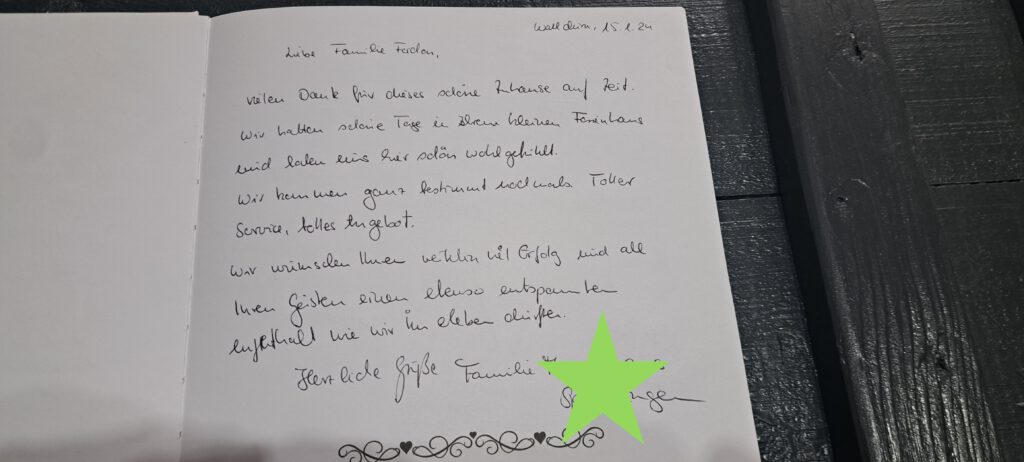 Walldürn, 15.1.24
Liebe Familie
vielen Dank für dieses schöne Zuhause auf Zeit.
Wir hatten schöne Tage in Ihrem kleinen Ferienhaus
und haben uns hier schön wohlgefühlt.
Wir kommen ganz bestimmt nochmals. Toller
Service, tolles Angebot.
Wir wünschen Ihnen weiterhin viel Erfolg und all
Ihren Gästen einen ebenso entspannten
Aufenthalt wie wir ihn erleben durften.
Herzliche Grüße Familie